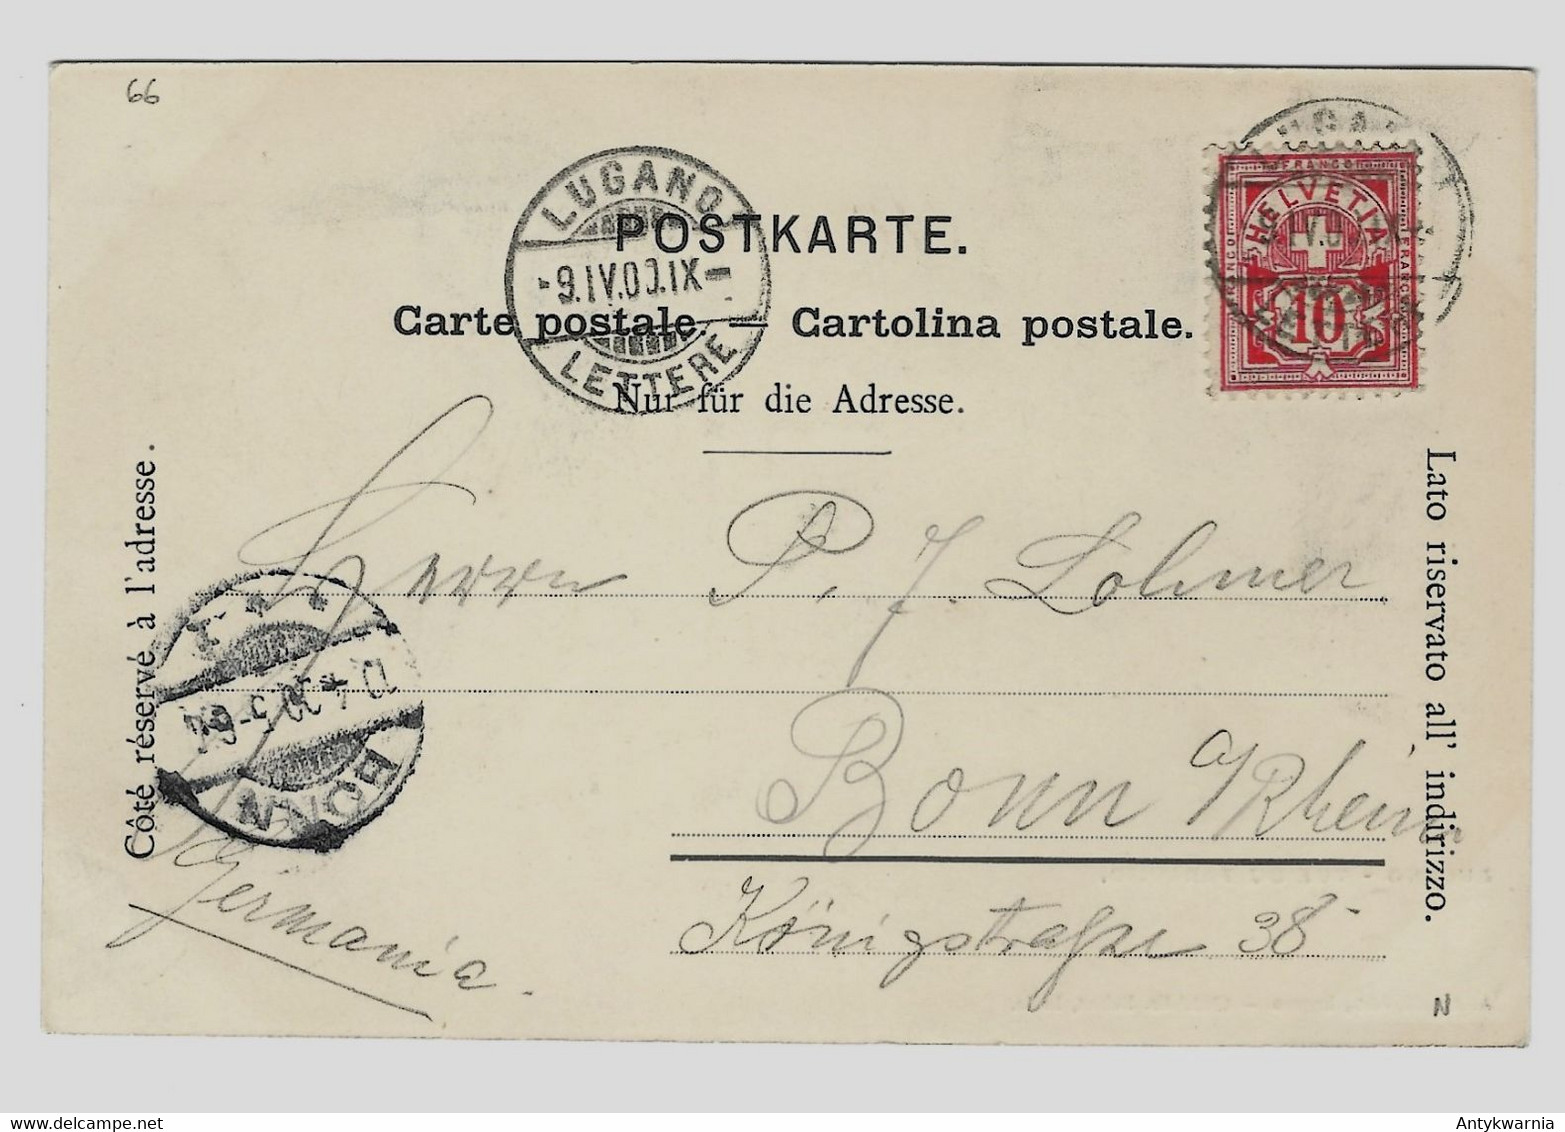 66
POSTKARTE.
Carte postale. — Cartolina postale.
Nur für die Adresse.
LUGANO
9.IV.00.IX
LETTERE
FRANCO
HELVETIA
FRANCO
FRANCO
10
Côté réservé à l'adresse.
Lato riservato all' indirizzo.
Herrn P. J. Lohmer
Bonn a/Rhein
Königstraße 38
Germania.
BONN
N
Antykwarnia